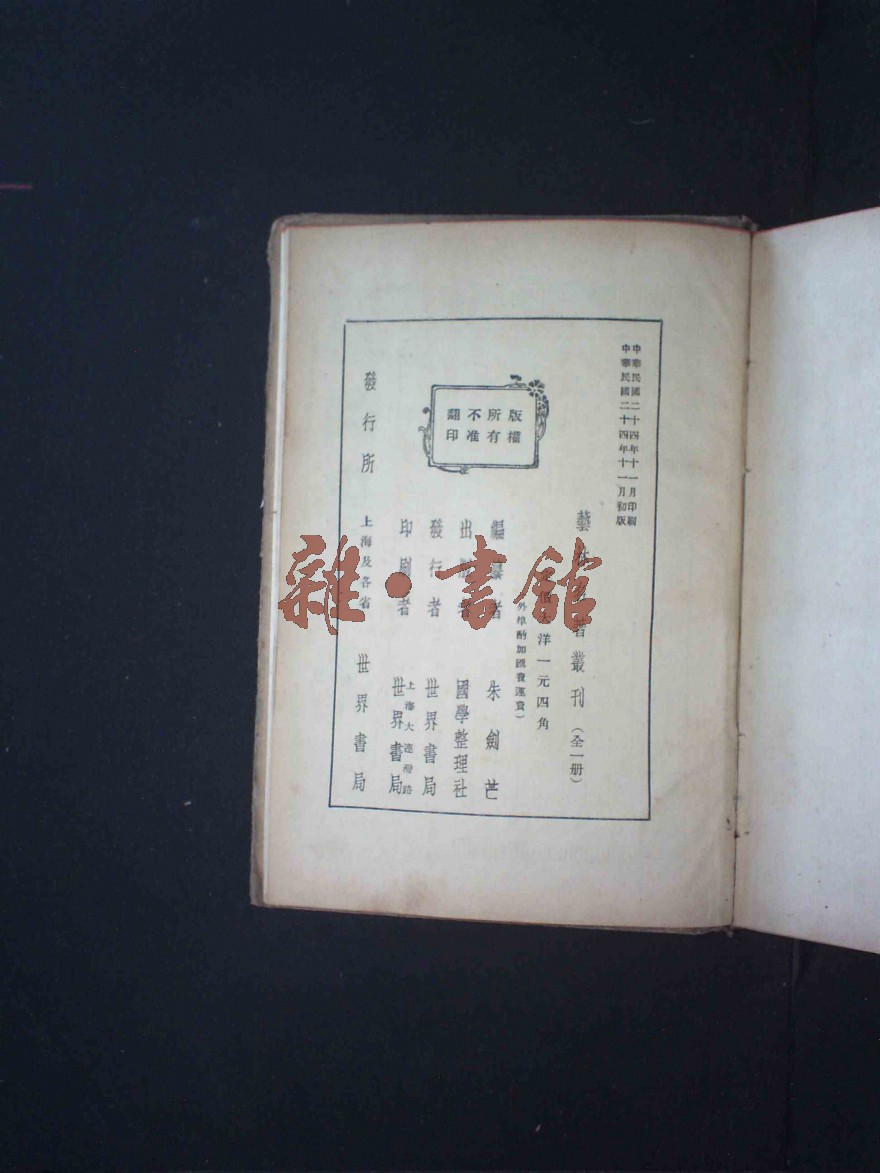 中華民國二十四年十一月印刷
中華民國二十四年十一月初版
藝林名著叢刊（全一册）
大洋一元四角
外埠酌加匯費運費）
版權
所有
不准
翻印
編纂者 朱劍芒
出版者 國學整理社
發行者 世界書局
印刷者 上海大連灣路 世界書局
發行所 上海及各省 世界書局
雜·書館